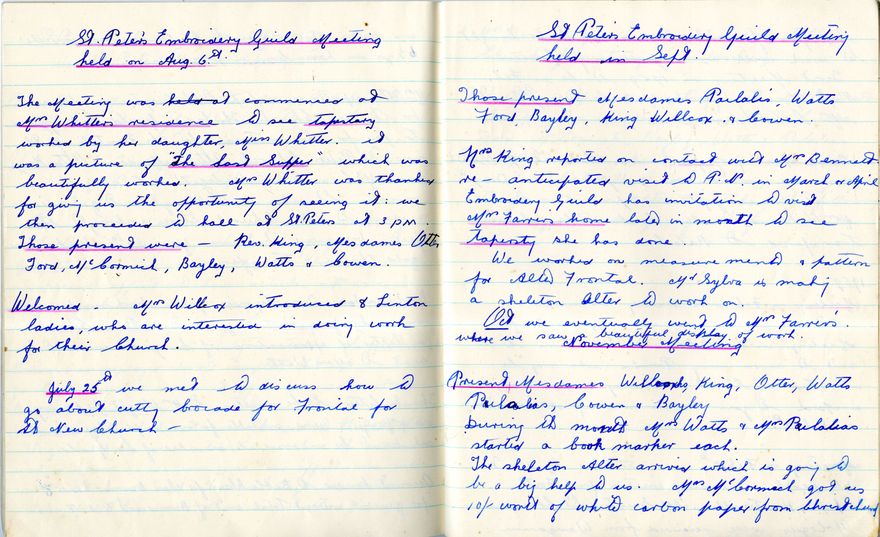 St. Peter's Embroidery Guild Meeting
held on Aug. 6st.
The Meeting was held at commenced at
Mrs Whitter's residence to see tapestary
worked by her daughter, Miss Whitter. it
was a picture of "The Last Supper" which was
beautifully worked. Mrs Whitter was thanked
for giving us the opportunity of seeing it: we
then proceeded to hall at St. Peters at 3 P.M.
Those present were - Rev. King, Mesdames Otter
Ford, McCormich, Bayley, Watts & Cowen.
Welcomed. Mrs Willcox introduced 8 Linton
ladies, who are interested in doing work
for their Church.
July 25th we met to discuss how to
go about cutty brocade for Frontal for
the New Church -
St Peters Embroidery Guild Meeting
held in Sept.
Those present Mesdames Paulalis, Watts
Ford, Bayley, King Willcox & Cowen.
Mrs King reported on contact with Mrs Bennett
re - anticipated visit to P.N. in March or April
Embroidery Guild has invitation to visit
Mrs Farrin's home later in month to see
tapersty she has done.
We worked on measurements & pattern
for Alter Frontal. Mr Sylva is makig
a skeleton Alter to work on.
Oct we eventually went to Mrs Farrin's.
where we saw beautiful display of work.
November Meeting
Present Mesdames King, Otter, Watts
Pulalias, Cowen & Bayley
During the month Mrs Watts & Mrs Pulalias
started a book marker each.
The skeleton Alter arrived which is going to
be a big help to us. Mrs McCormach got us
10/- worth of white carbon paper from Christchurch